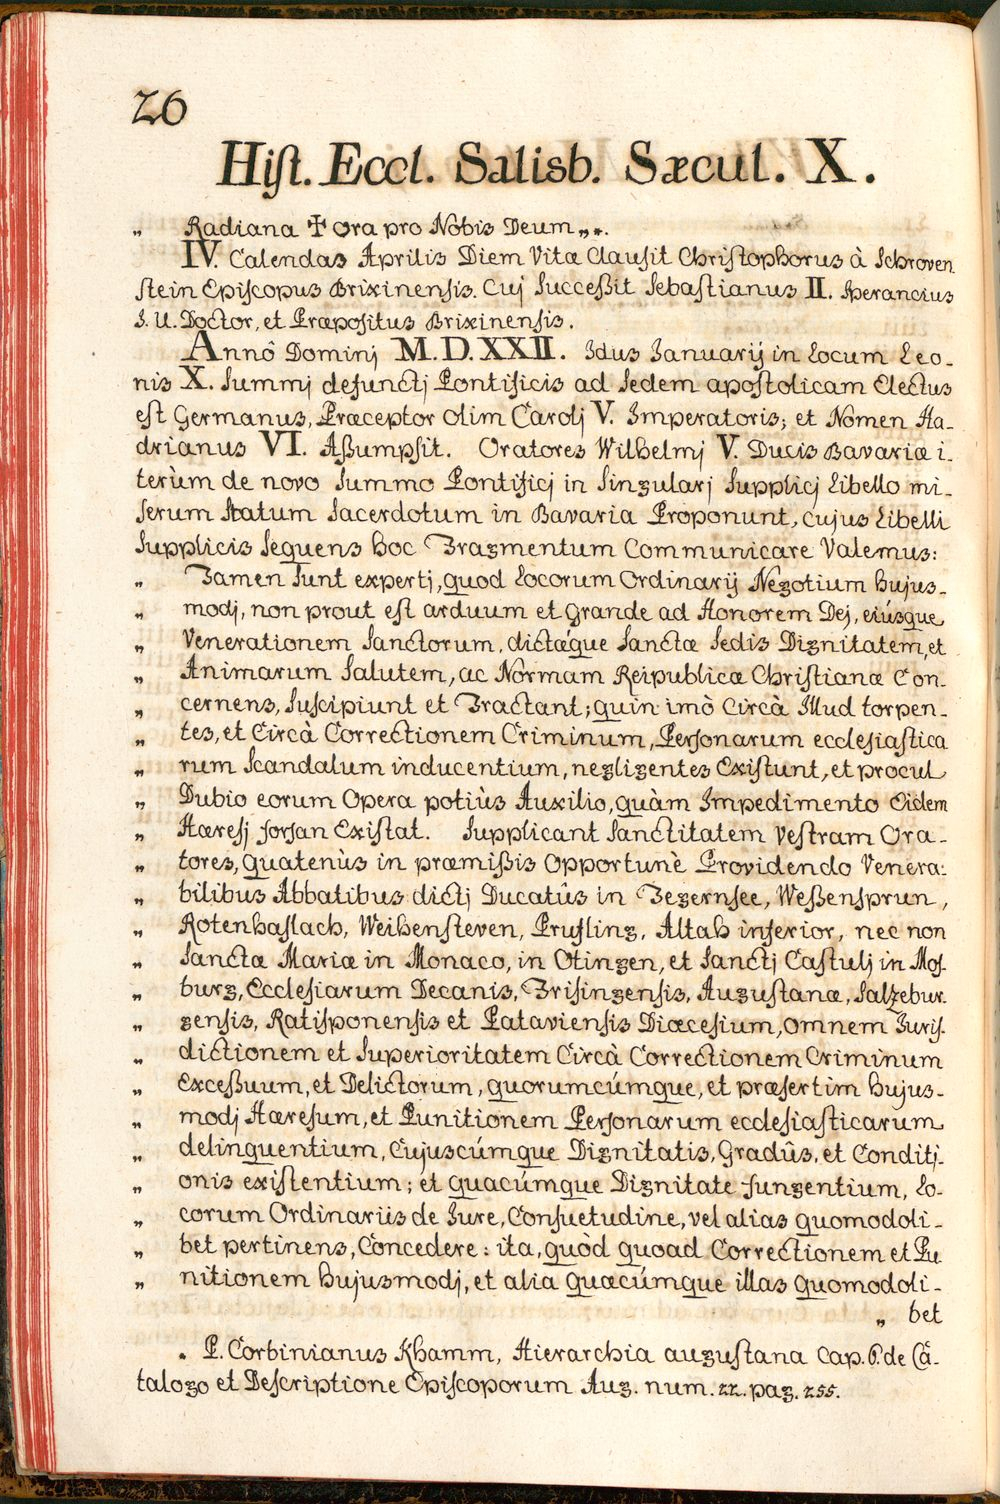 26
Hist. Eccl. Salisb. Sæcul. X.
„ Radiana † ora pro Nobis Deum „*.
IV. Calendas Aprilis Diem Vitæ Clausit Christophorus à Schroven
stein Episcopus Brixinensis. Cuj Successit Sebastianus II. Sperancius
J. U. Doctor, et Præpositus Brixinensis.
Annô Dominj M.D.XXII. Idus Januarij in Locum Leo-
nis X. Summj defunctj Pontificis ad Sedem apostolicam Electus
est Germanus, Præceptor olim Carolj V. Imperatoris; et Nomen Ha-
drianus VI. Aßumpsit. Oratores Wilhelmj V. Ducis Bavariæ i-
terùm de novo Summo Pontificj in Singularj Supplicj Libello mi-
serum Statum Sacerdotum in Bavaria Proponunt, cujus Libelli
Supplicis Sequens hoc Fragmentum Communicare Valemus:
„ Tamen Sunt expertj, quod Locorum Ordinarij Negotium hujus-
„ modj, non prout est arduum et Grande ad Honorem Dej, eiúsque
„ Venerationem Sanctorum, dictǽque Sanctæ Sedis Dignitatem, et
„ Animarum Salutem, ac Normam Reipublicæ Christianæ Con-
„ cernens, Suscipiunt et Tractant; quin imò Circà Illud torpen-
„ tes, et Circà Correctionem Criminum, Personarum ecclesiastica
„ rum Scandalum inducentium, negligentes Existunt, et procul
„ Dubio eorum Opera potiùs Auxilio, quàm Impedimento Eidem
„ Hæresj forsan Existat. Supplicant Sanctitatem Vestram Ora-
„ tores, quatenùs in præmißis Opportunè Providendo Venera:
„ bilibus Abbatibus dictj Ducatûs in Tegernsee, Weßensprun,
„ Rotenhaslach, Weihensteven, Prufling, Altah inferior, nec non
„ Sanctæ Mariæ in Monaco, in Otingen, et Sanctj Castulj in Mos-
„ burg, Ecclesiarum Decanis, Frisingensis, Augustanæ, Salzebur-
„ gensis, Ratisponensis et Pataviensis Diœcesium, omnem Juris-
„ dictionem et Superioritatem Circà Correctionem Criminum
„ Exceßuum, et Delictorum, quorumcúmque, et præsertim hujus-
„ modj Hæresum, et Punitionem Personarum ecclesiasticarum
„ delinquentium, Cujuscúmque Dignitatis, Gradûs, et Conditj-
„ onis existentium; et quacúmque Dignitate fungentium, Lo-
„ corum Ordinariis de Jure, Consuetudine, vel alias quomodoli-
„ bet pertinens, Concedere: ita, quòd quoad Correctionem et Pu
„ nitionem hujusmodj, et alia quæcúmque illas quomodoli-
„ bet
* P. Corbinianus Khamm, Hierarchia augustana Cap. 6. de Ca-
talogo et Descriptione Episcoporum Aug. num. 22. pag. 255.